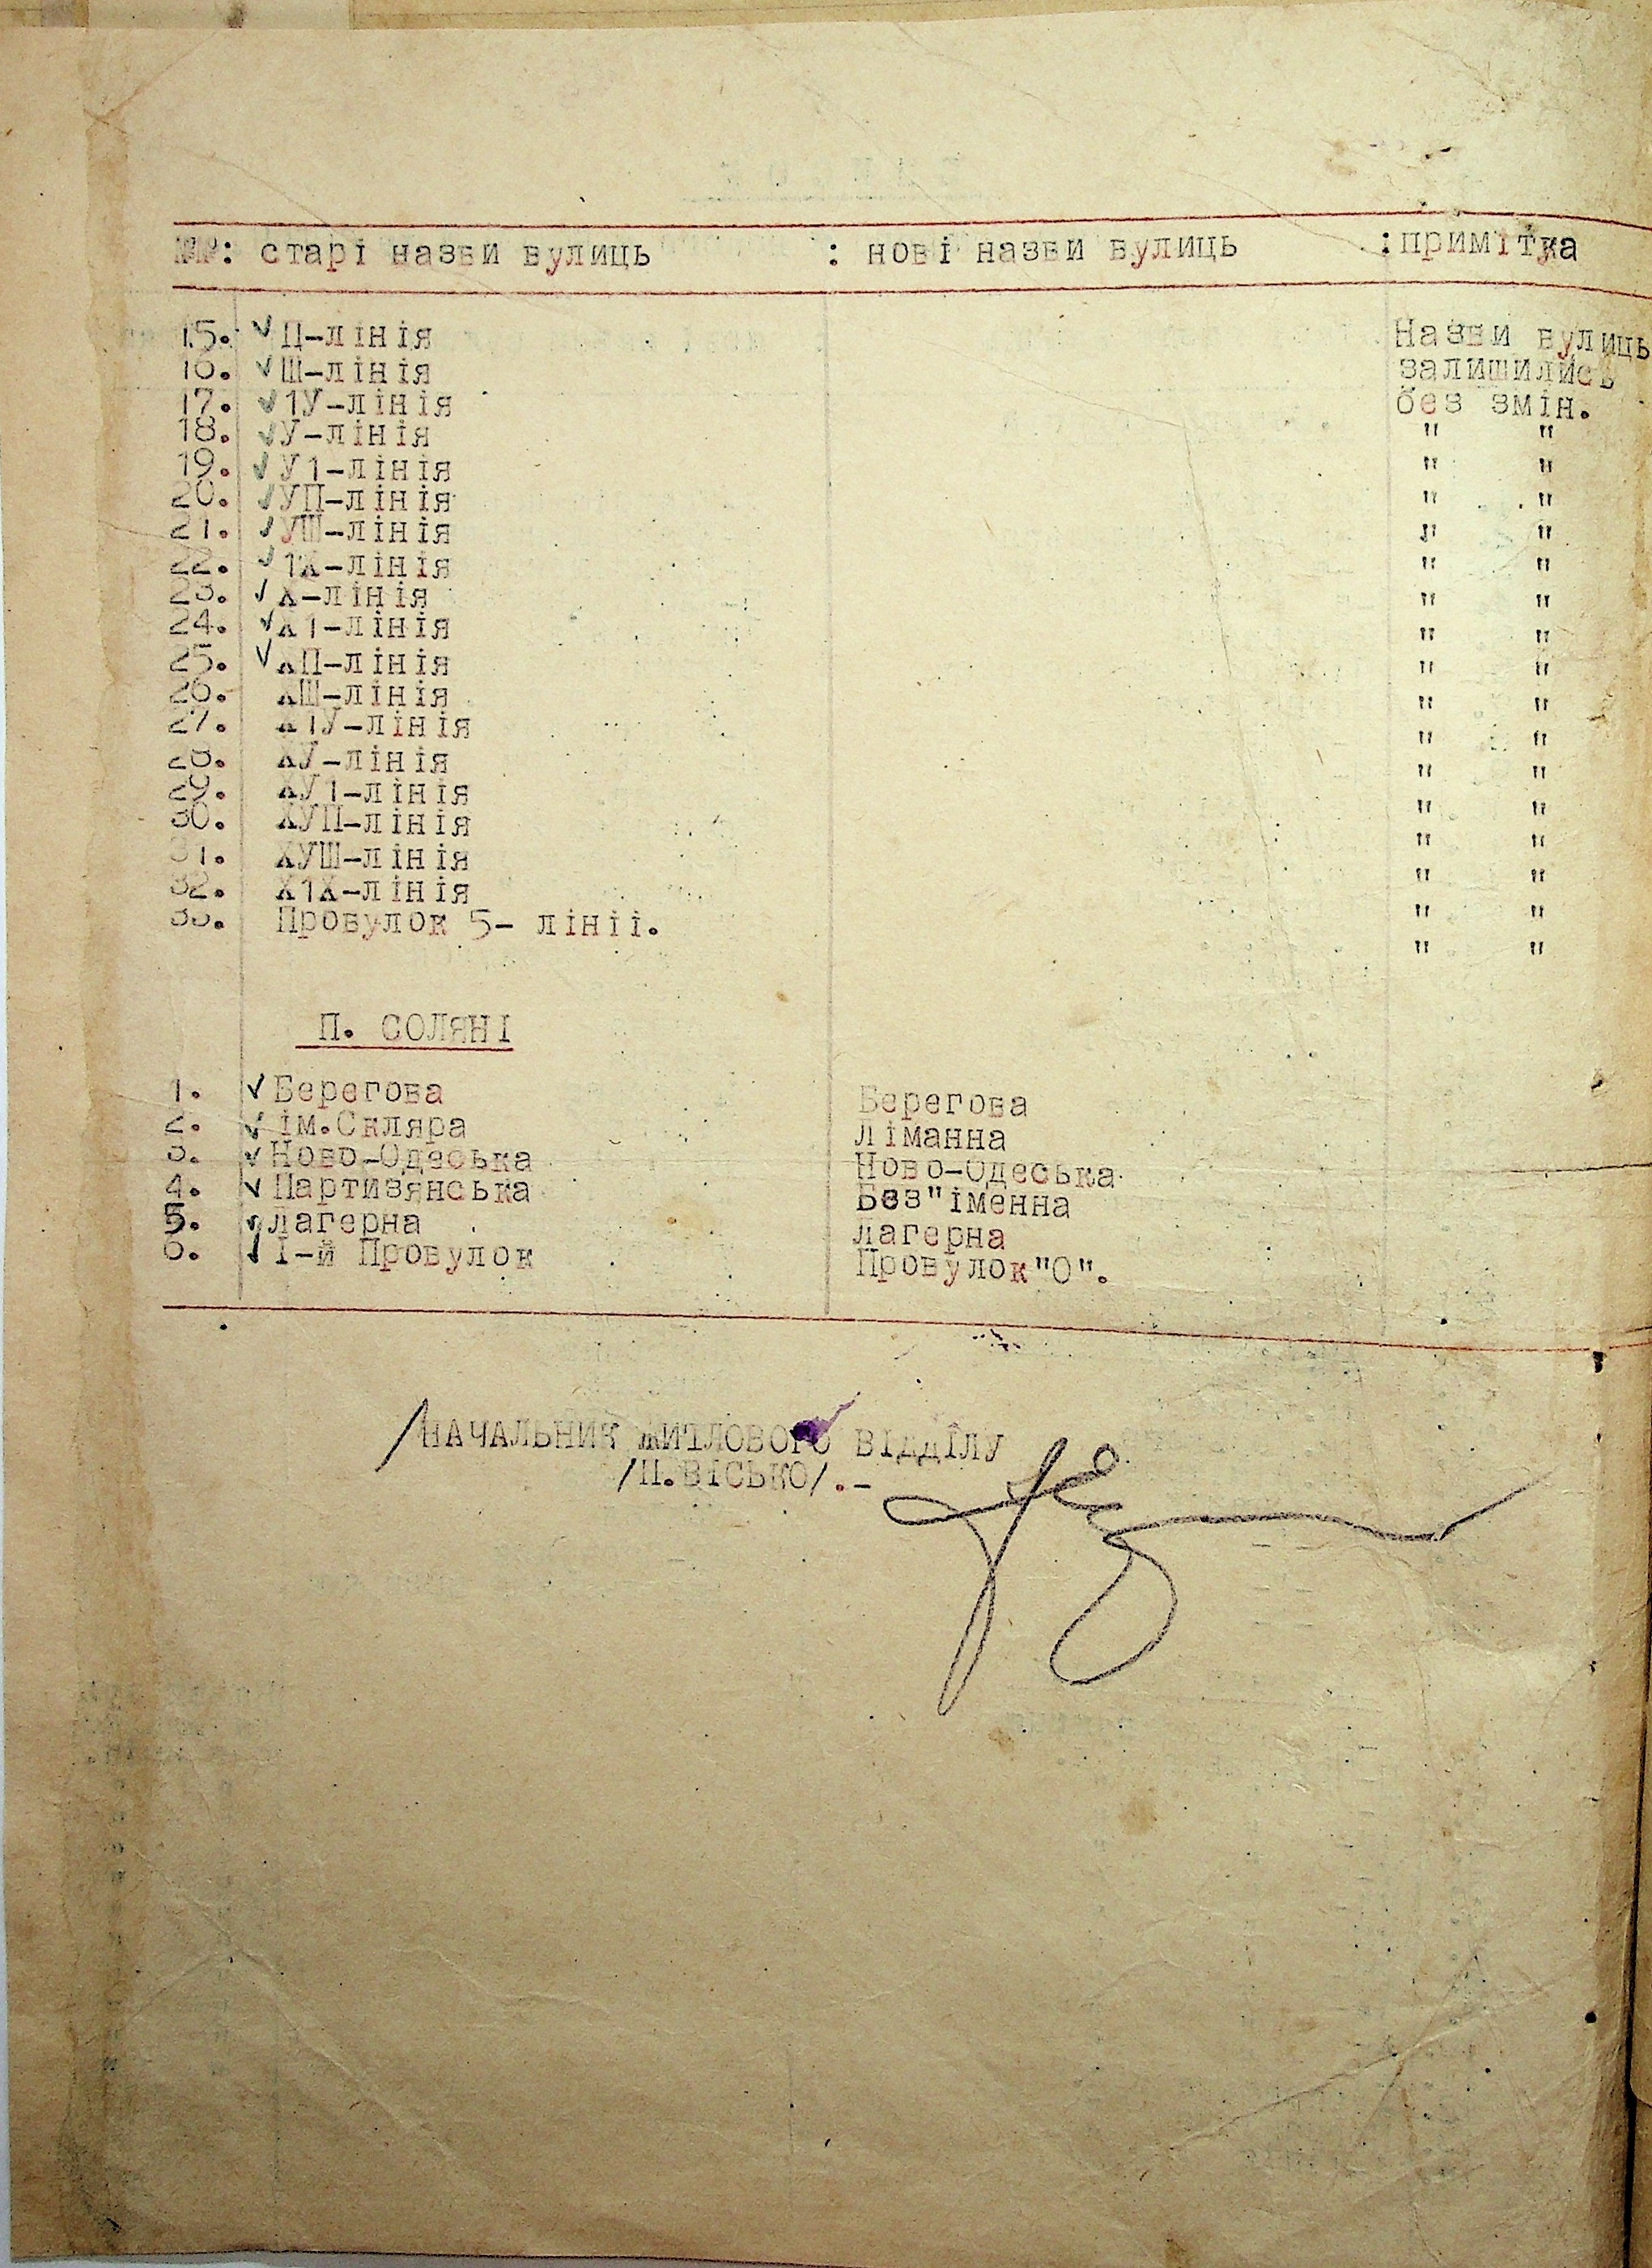 №№: старі назви вулиць : нові назви вулиць : примітка
15. ✓ Ц-лінія Назви вулиць
16. ✓ Ш-лінія залишились
17. ✓ 1У-лінія без змін.
18. ✓ У-лінія " "
19. ✓ У1-лінія " "
20. ✓ УП-лінія " "
21. ✓ УШ-лінія " "
22. ✓ 1Х-лінія " "
23. ✓ Х-лінія " "
24. ✓ Х1-лінія " "
25. ✓ ХП-лінія " "
26. ХШ-лінія " "
27. Х1У-лінія " "
28. ХУ-лінія " "
29. ХУ1-лінія " "
30. ХУП-лінія " "
31. ХУШ-лінія " "
32. Х1Х-лінія " "
33. Провулок 5- лініі. " "
П. СОЛЯНІ
1. ✓ Берегова Берегова
2. ✓ ім.Скляра Ліманна
3. ✓ Ново-Одеська Ново-Одеська
4. ✓ Партизянська Без"іменна
5. ✓ Лагерна Лагерна
6. ✓ І-й Провулок Провулок"О".
/НАЧАЛЬНИК ЖИТЛОВОГО ВІДДІЛУ
/П.ВІСЬКО/.-